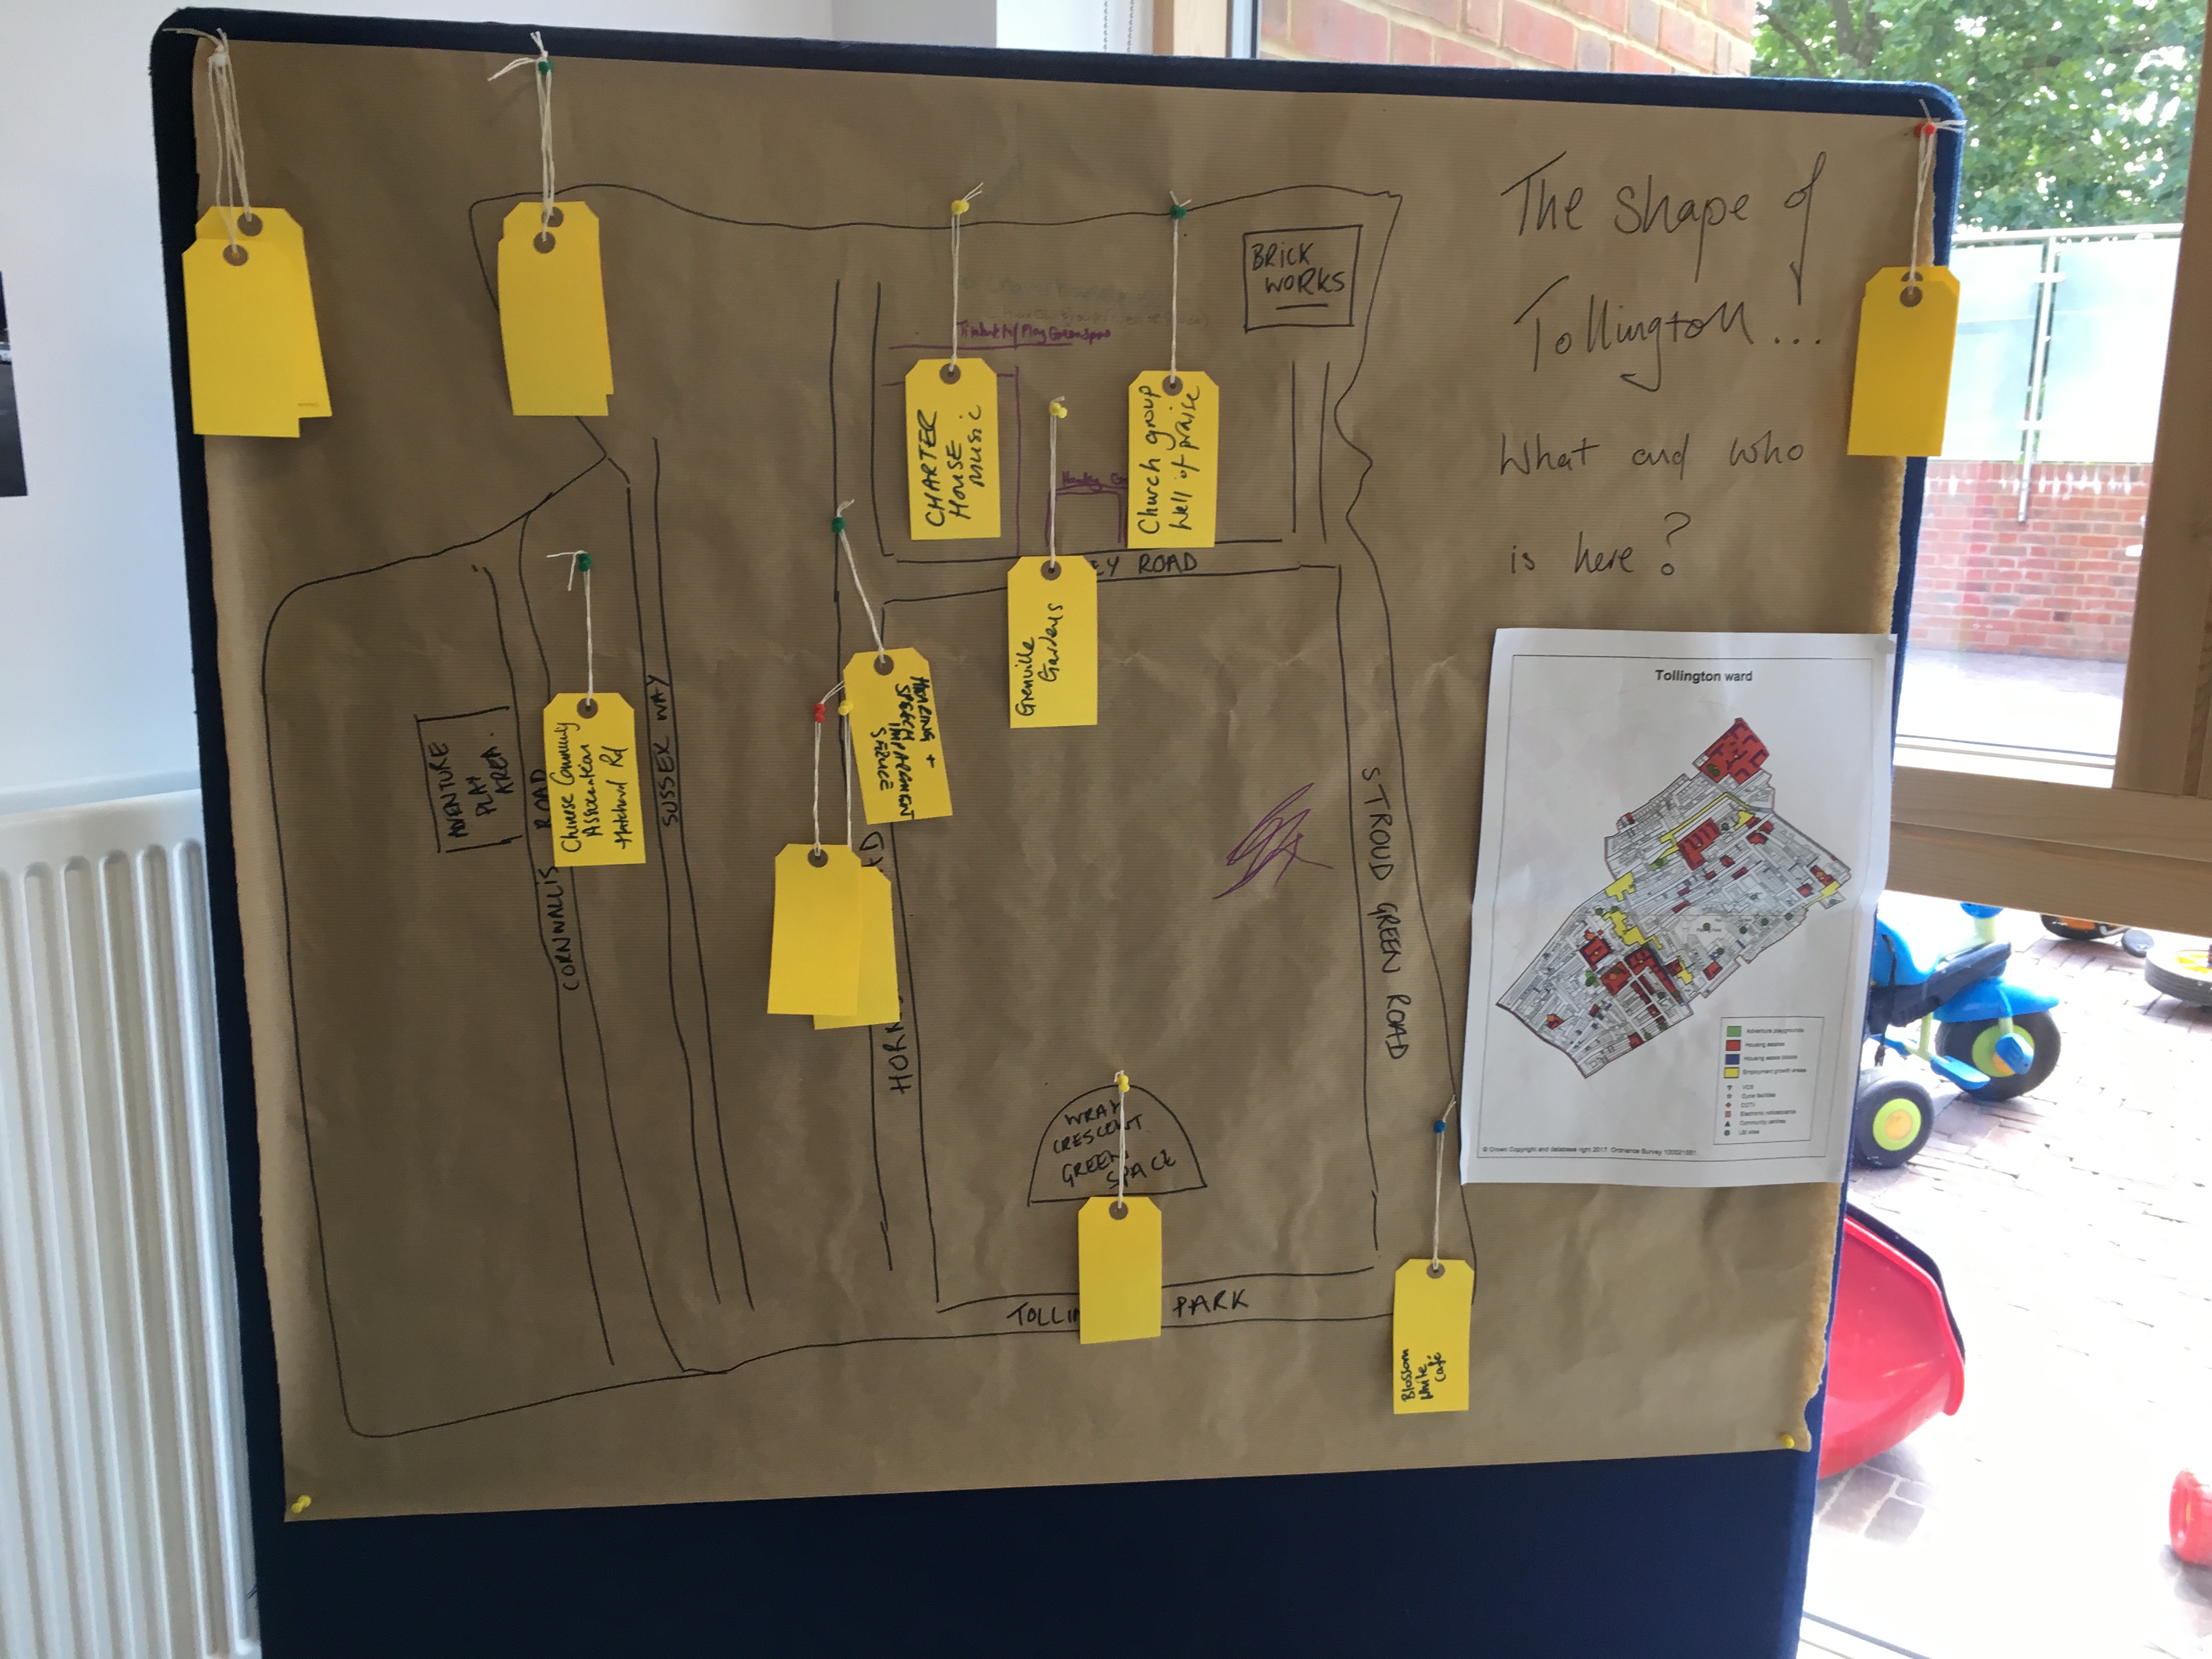 The shape of
Tollington...
What and who
is here?
BRICK
WORKS
Play Greenspace
CHARTER
HOUSE
MUSIC
Church group
Well of praise
EY ROAD
Grenville
Gardens
HEARING +
SPEECH IMPAIRMENT
SERVICE
ADVENTURE
PLAY
AREA.
CORNWALLIS ROAD
Chinese Community
Association
Hatchard Rd
SUSSEX WAY
HORN
STROUD GREEN ROAD
WRAY
CRESCENT
GREEN
SPACE
TOLLIN PARK
Blossom
White
Café
Tollington ward
Adventure playgrounds
Housing estates
Housing estate blocks
Employment growth areas
VCS
Cycle facilities
CCTV
Electronic noticeboards
Community centres
LBI sites
© Crown Copyright and database right 2017. Ordnance Survey 100021551.